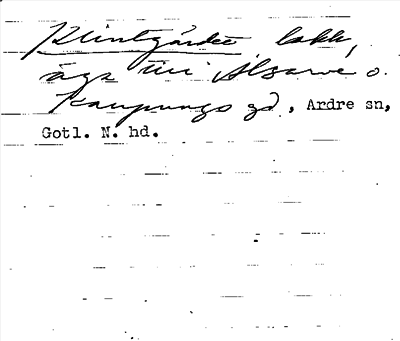 Klintgärdet lokk,
äga till Alsarve o.
Kaupungs gd., Ardre sn,
Gotl. N. hd.